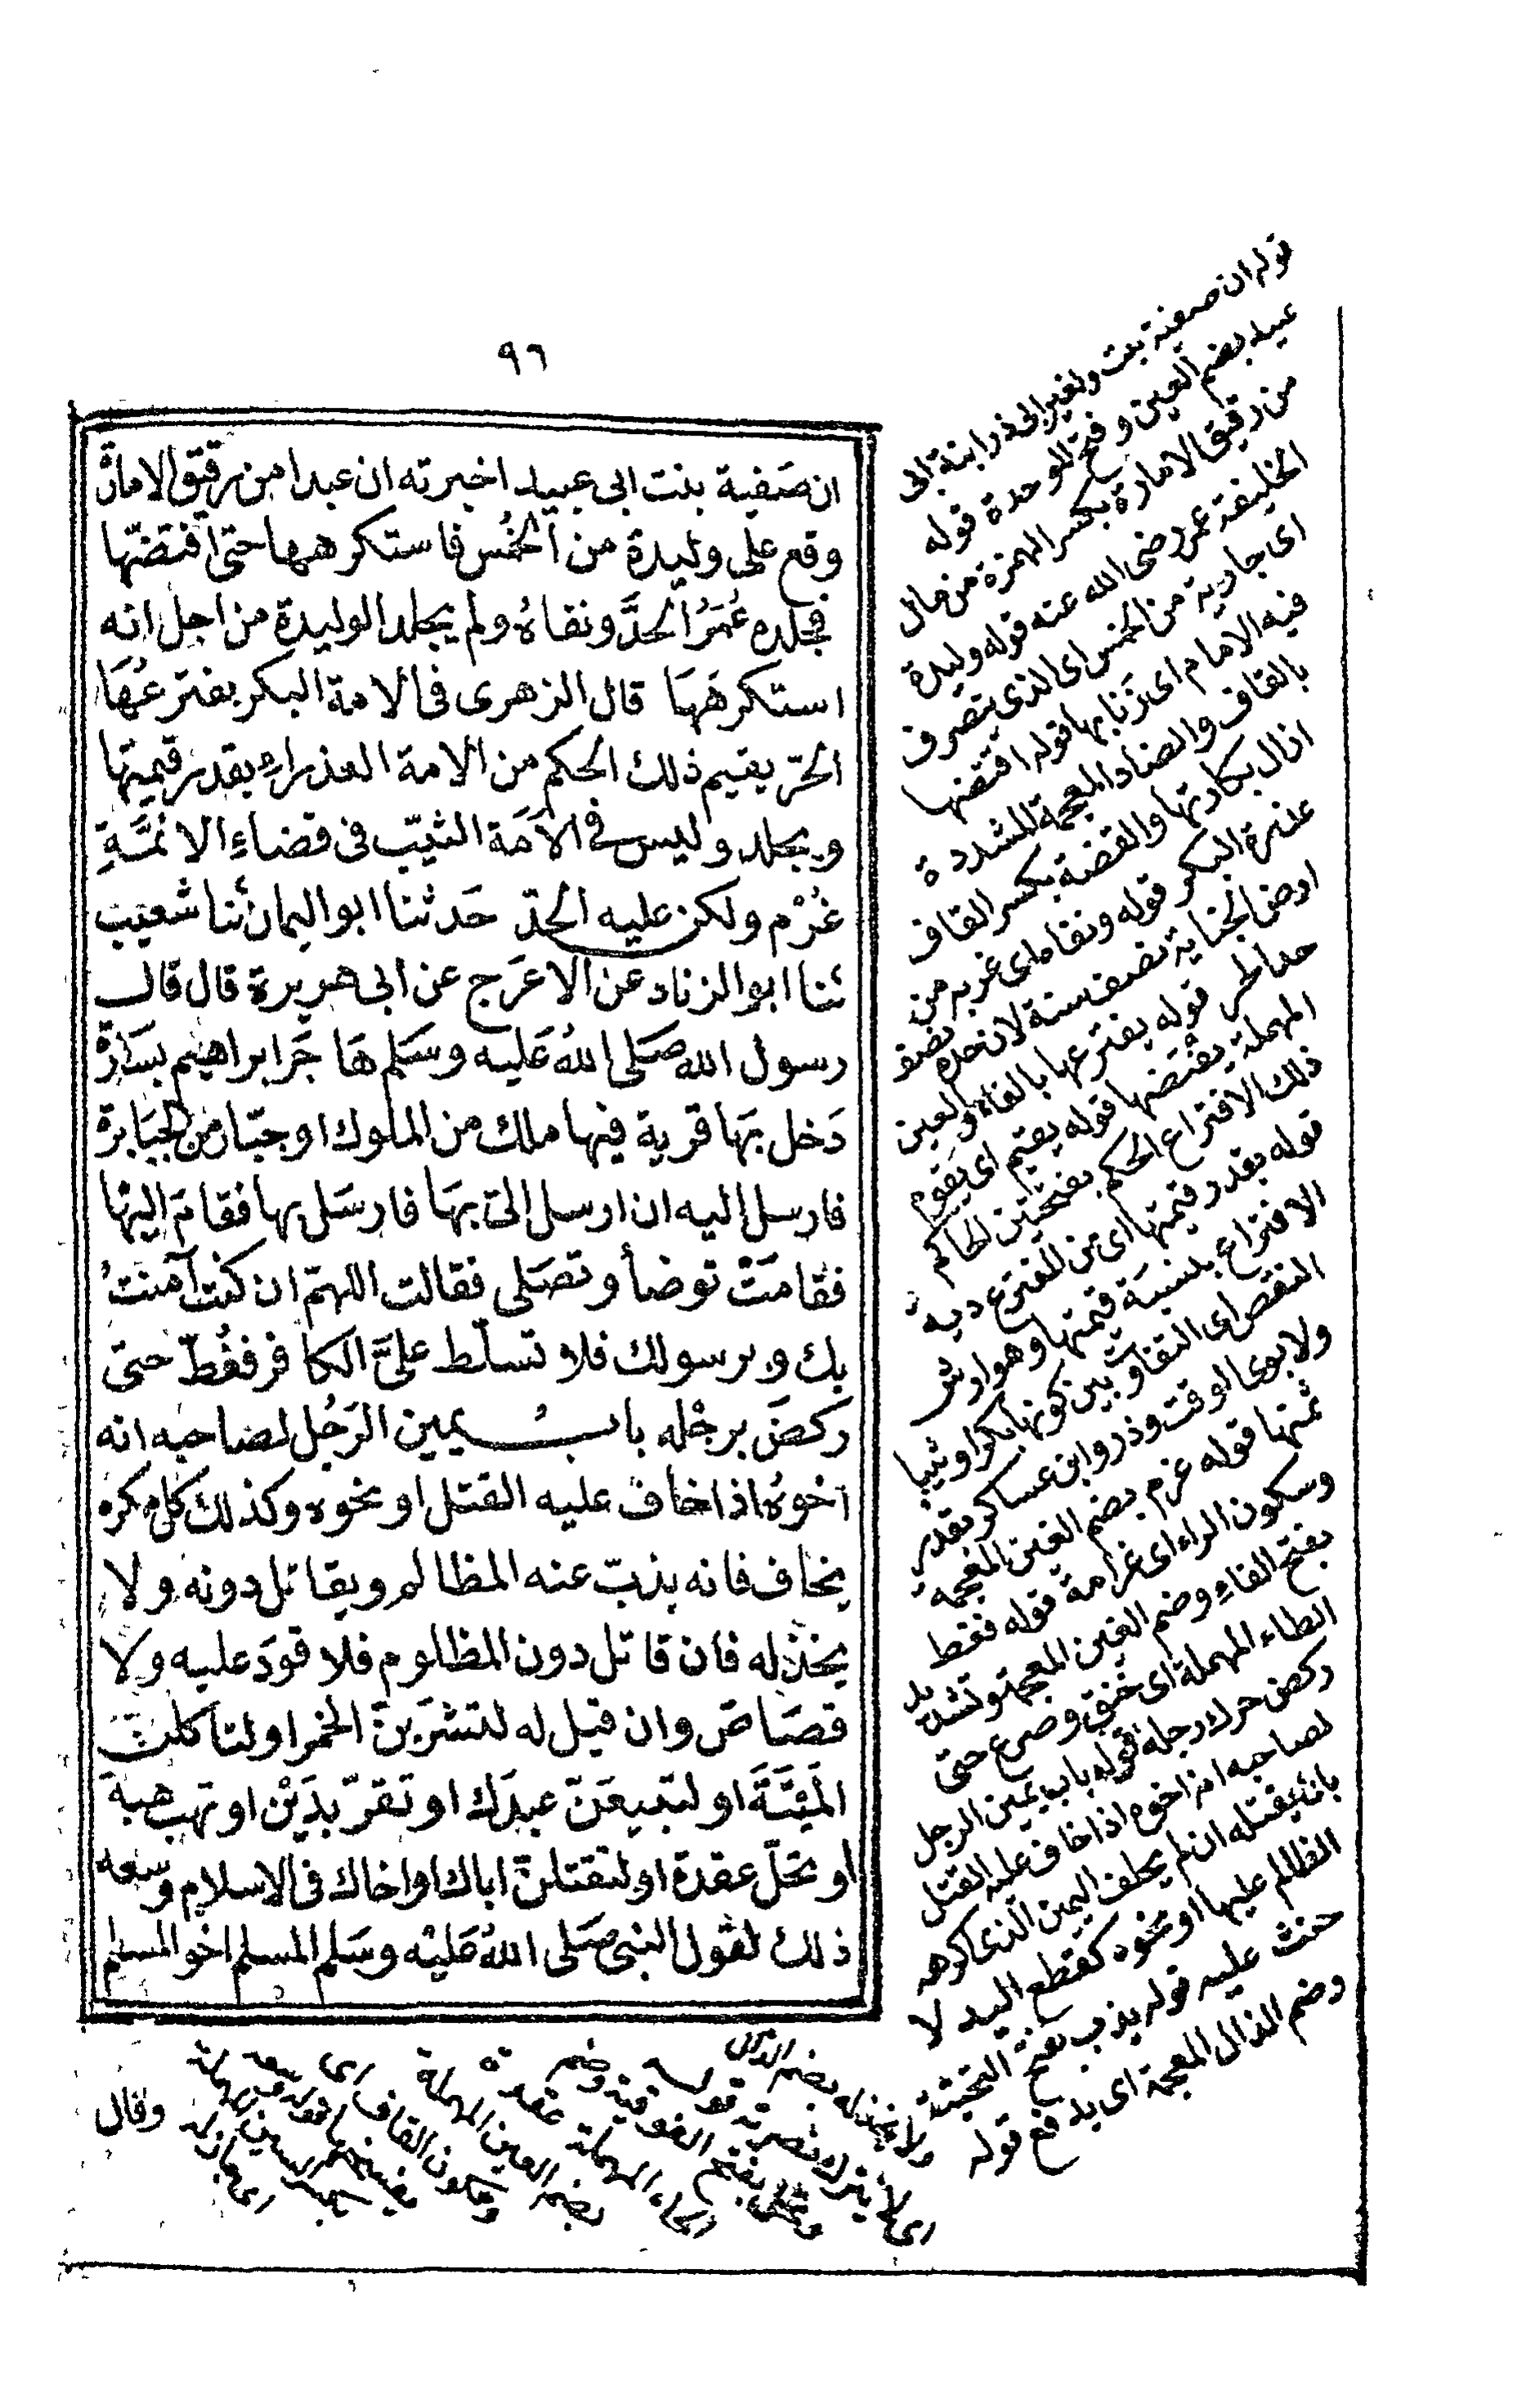 ٩٦
ان صَفية بنت ابى عبيد اخبرته ان عبدا من رقيق الامارة
وقع على وليدة من الخُمُس فاستكرهها حتى اقتضّها
فجلده عُمَرُ الحدَّ ونفاهُ ولم يجلد الوليدة من اجل انه
استكرهَهَا قال الزهرى فى الامة البكر يفترعُهَا
الحرّ يقيم ذلك الحكم من الامة العذراءِ بقدر قيمتها
ويجلد وليس فى الاَمَة الثيّب فى قضاءِ الائمَّةِ
غُرْم ولكن عليه الحدّ حَدثنا ابو اليمان أنا شعيب
ثنا ابو الزناد عن الاعرَج عن ابى هريرة قال قال
رسول الله صَلى اللهُ عَليه وسَلم هَاجَر ابراهيم بسَارَة
دَخل بهَا قرية فيها ملك من الملوك او جبّار من الجبَابرة
فارسل اليه ان ارسل الىّ بهَا فارسَل بها فقامَ اليْها
فقامَتْ توضأ وتصَلى فقالت اللهمّ ان كنت آمنتُ
بك وبرسولك فلا تسلّط علىَّ الكافر فغُطّ حتى
ركضَ برجْله بابُ يمين الرَجُل لصَاحبه انه
اخوهُ اذا خافَ عليه القتل او نحوه وكذلك كل مكره
يخاف فانه يذبّ عنه المظالم ويقاتل دونه ولا
يخذله فان قاتل دون المظلوم فلا قوَد عليه ولا
قصَاصَ وان قيل له لتشرَبنّ الخمر او لتأكلنّ
المَيْتَةَ او لتبيعَنّ عبدَك او تقرّ بدَيْن او تهب هبة
او تحلّ عقدة او لنقتلنّ اباك او اخاك فى الاسلام وسعه
ذلك لقول النبى صَلى اللهُ عَليْه وسَلم المسلم اخو المسلم
قوله ان صفية بنت ولغير ابى ذر ابنة ابى
عبيد بضم العين وفتح الموحدة قوله
من رقيق الامارة بكسر الهمزة من مال
الخليفة عمر رضى الله عنه قوله وليدة
اى جارية من الخمس اى الذى يتصرف
فيه الامام اى زنا بها قوله اقتضها
بالقاف والضاد المعجمة المشددة
ازال بكارتها والقضة بكسر القاف
عذرة البكر قوله ونفاه اى غربه من
ارض الجناية نصف سنة لان حده نصف
حد الحر قوله يفترعها بالفاء والعين
المهملة يقتضها قوله يقيم اى يقوم
ذلك الافتراع الحكم بفتحتين الحاكم
قوله بقدر قيمتها اى من المفترع دية
الافتراع بنسبة قيمتها وهو ارش
النقص اى التفاوت بين كونها بكرا وثيبا
ولابوى الوقت وذر وابن عساكر بقدر
ثمنها قوله غرم بضم الغين المعجمة
وسكون الراء اى غرامة قوله فغط
بفتح الفاء وضم الغين المعجمة وتشديد
الطاء المهملة اى خنق وصرع حتى
ركض حرك رجله قوله باب يمين الرجل
لصاحبه انه اخوه اذا خاف عليه القتل
بانه يقتله ان لم يحلف اليمين الذى اكرهه
الظالم عليها او نحوه كقطع اليد لا
حنث عليه قوله يذب بفتح التحتية
وضم الذال المعجمة اى يدفع قوله
ولا يخذله بضم الذال
اى لا يترك نصرته قوله
وتحل بفتح الفوقية وضم
الحاء المهملة عقدة
بضم العين المهملة
وسكون القاف اى
وقال